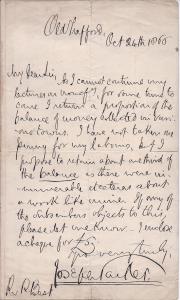 Old Trafford,
Oct 24th 1865
My dear Sir, As I cannot continue my
lectures on for some time to
come I return a proportion of the
balance of money collected in vari-
ous towns. I have not taken one
penny for my labours, but I
propose to retain about one third of
the balance as there were in-
numerable etceteras about
a work like mine. If any of
the subscribers objects to this,
please let me know. I enclose
a cheque for £5
Yours very truly,
Joseph Barker